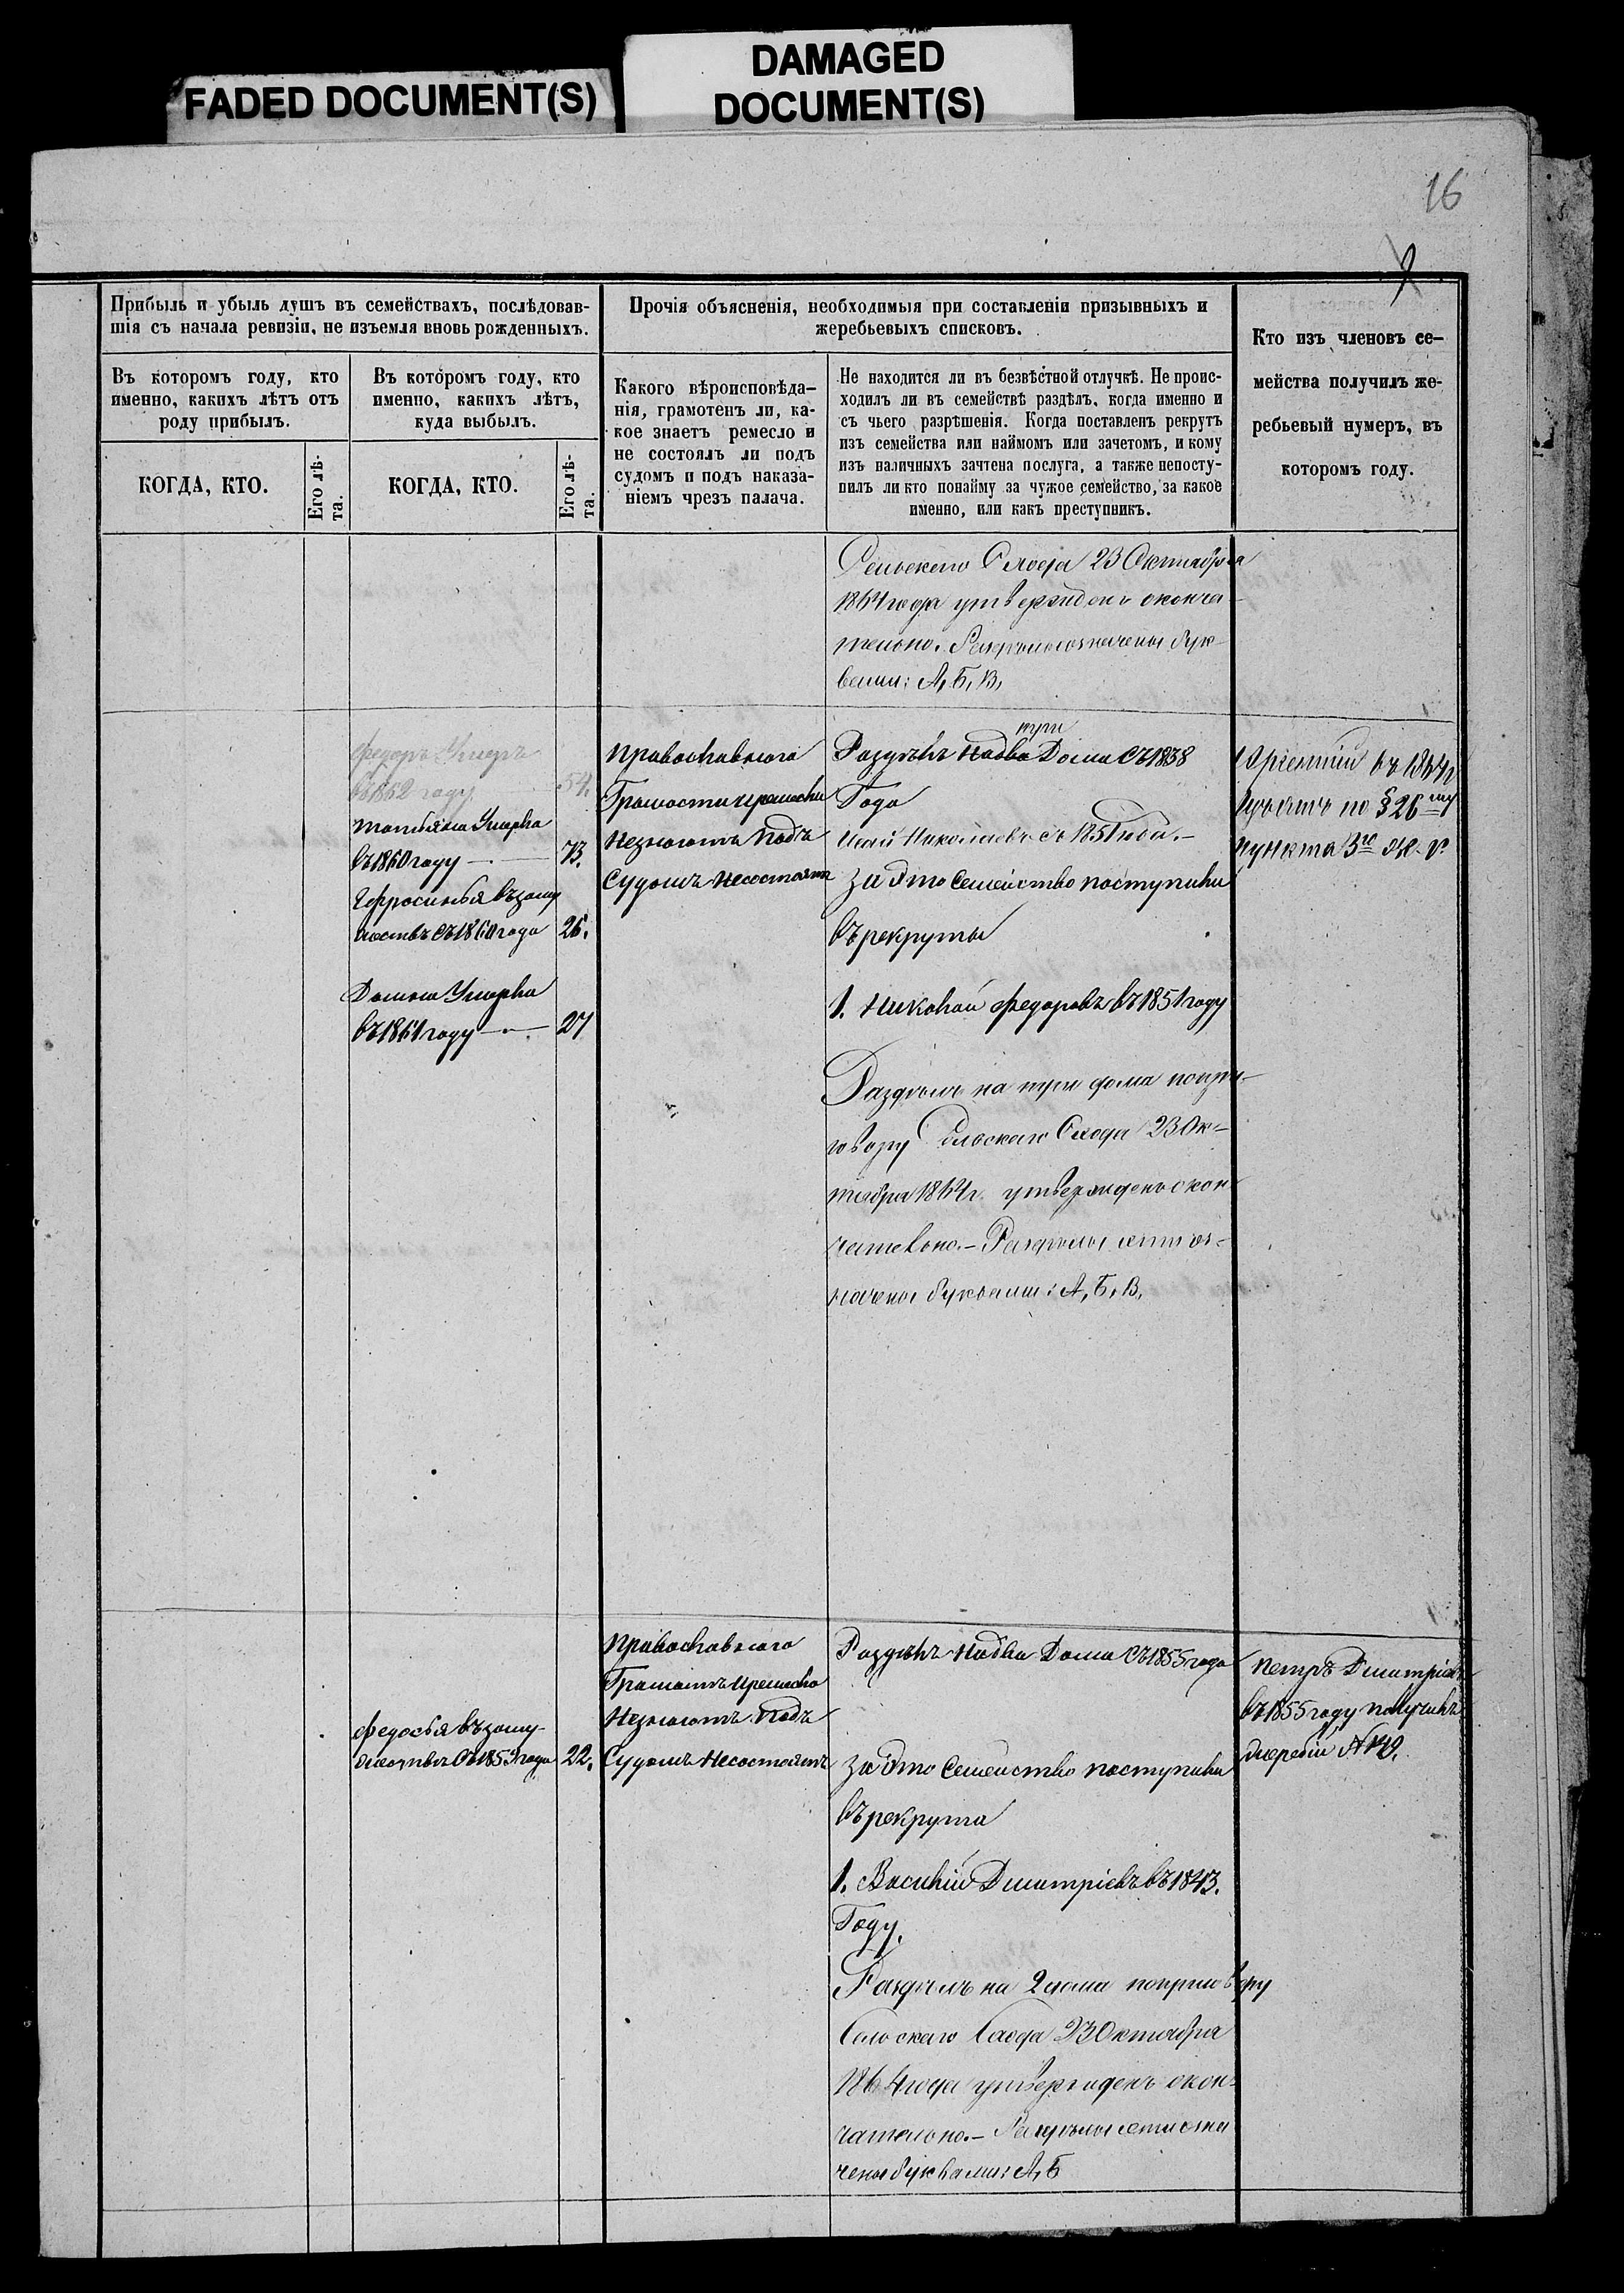 FADED DOCUMENT(S)
DAMAGED
DOCUMENT(S)
16
Прибыль и убыль душъ въ семействахъ, послѣдовав-
шія съ начала ревизіи, не изъемля вновь рожденныхъ.
Прочія объясненія, необходимыя при составленіи призывныхъ и
жеребьевыхъ списковъ.
Кто изъ членовъ се-
мейства получилъ же-
ребьевый нумеръ, въ
которомъ году.
Въ которомъ году, кто
именно, какихъ лѣтъ отъ
роду прибылъ.
Въ которомъ году, кто
именно, какихъ лѣтъ,
куда выбылъ.
Какого вѣроисповѣда-
нія, грамотенъ ли, ка-
кое знаетъ ремесло и
не состоялъ ли подъ
судомъ и подъ наказа-
ніемъ чрезъ палача.
Не находится ли въ безвѣстной отлучкѣ. Не проис-
ходилъ ли въ семействѣ раздѣлъ, когда именно и
съ чьего разрѣшенія. Когда поставленъ рекрутъ
изъ семейства или наймомъ или зачетомъ, и кому
изъ наличныхъ зачтена послуга, а также непосту-
пилъ ли кто понайму за чужое семейство, за какое
именно, или какъ преступникъ.
КОГДА, КТО.
Его лѣ-
та.
КОГДА, КТО.
Его лѣ-
та.
Сельскаго Схода 23 Октября
1864 года утвержденъ оконча-
тельно. Раздѣлы означены бук-
вами: А, Б, В,
Федоръ Умеръ
въ 1862 году 54.
Татьяна Умерла
въ 1860 году — 73.
Ефросинья въ заму
жествѣ съ 1860 года 26.
Домна Умерла
въ 1861 году — 27
Православнаго
Грамоти и ремесла
Незнаютъ Подъ
Судомъ Несостоятъ
три
Раздѣлъ На два Дома Съ 1838
Года
Николаевъ съ 1851 года.—
За Это Семейство поступили
въ рекруты
1. Николай Федоровъ въ 1851 году
Раздѣлъ на три дома по при-
говору Сельскаго Схода 23 Ок-
тября 1864 г. утвержденъ окон-
чательно.— Раздѣлы семи оз-
начены буквами: А, Б, В.
въ 1864 г
по § 26 му
пункта 3 го
Федосья въ заму-
жествѣ Съ 1859 года 22.
Православнаго
Грамотъ и ремесла
Незнаютъ Подъ
Судомъ Несостоятъ
Раздѣлъ На два Дома Съ 1855 года
За Это Семейство поступили
въ рекрута
1. Василій Дмитріевъ въ 1843.
Году.
Раздѣлъ на 2 дома по приговору
Сельскаго Схода 23 Октября
1864 года утвержденъ окон-
чательно.— Раздѣлы семи озна
чены буквами: А, Б
Петръ Дмитріевъ
въ 1855 году получилъ
жеребій №